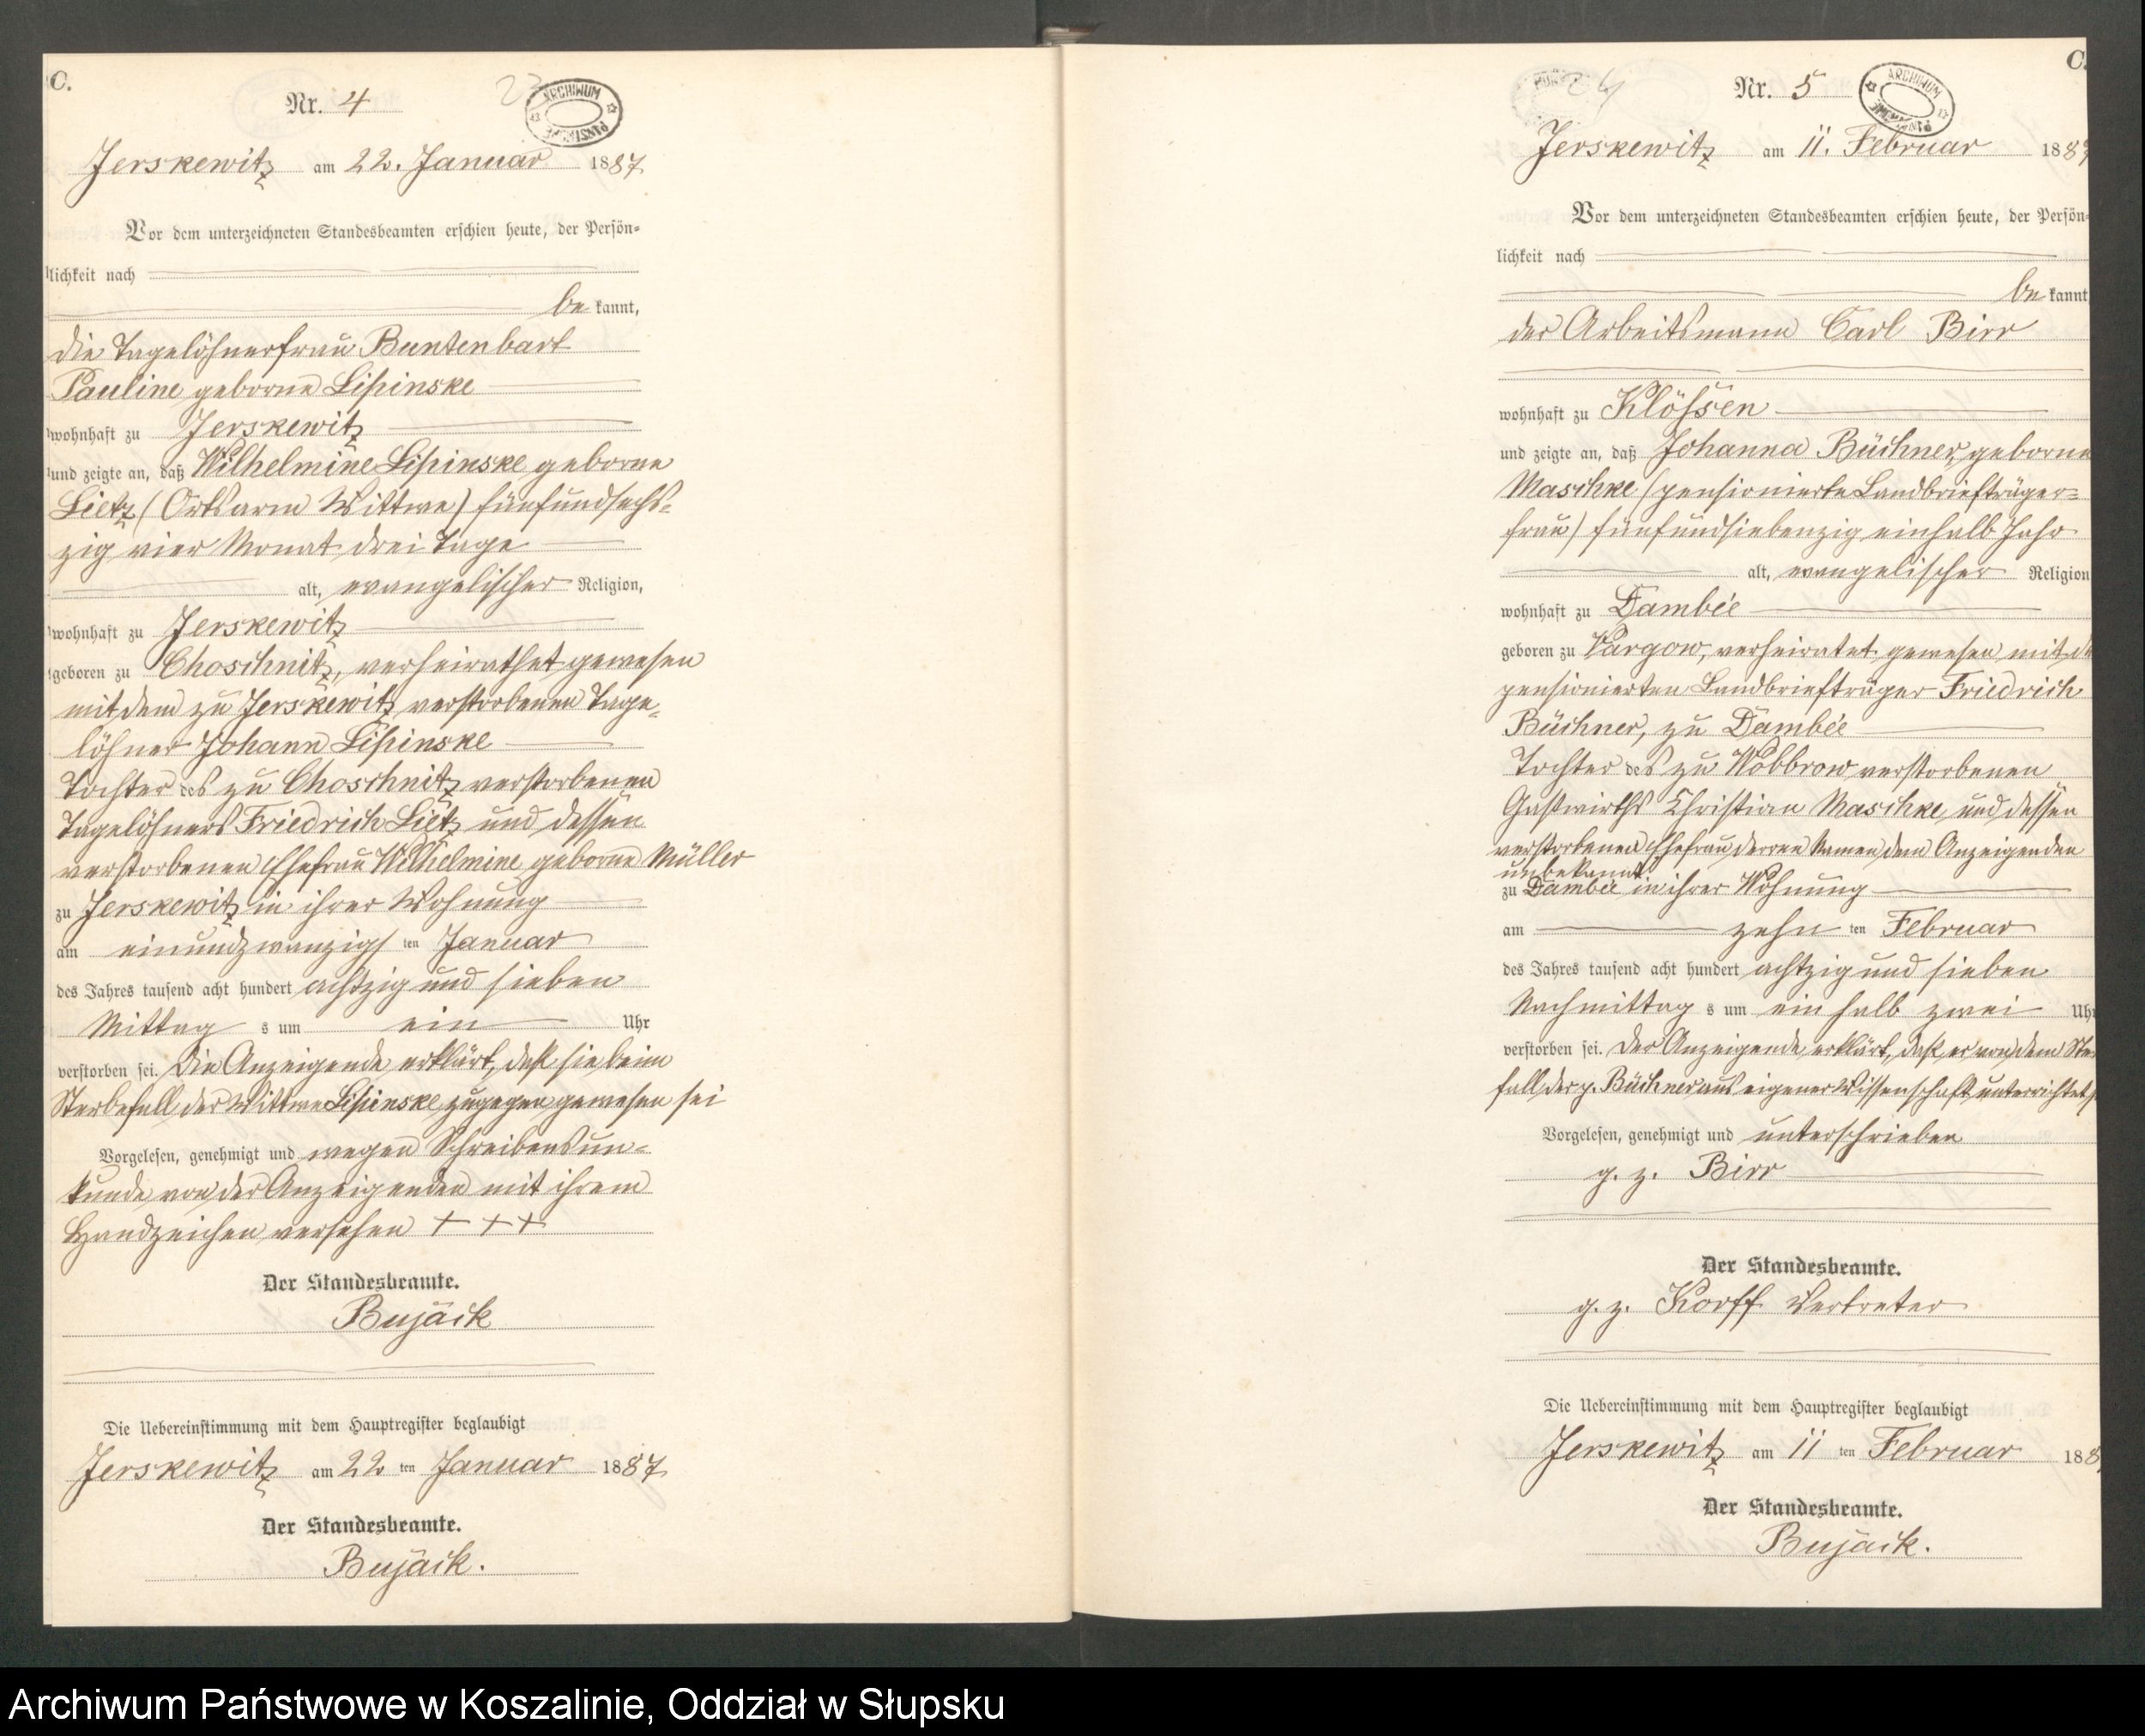 C.
Nr. 4
23
ARCHIWUM PAŃSTWOWE
Jerskewitz am 22. Januar 1887
Vor dem unterzeichneten Standesbeamten erschien heute, der Persön-
lichkeit nach
be kannt,
die Tagelöhnerfrau Buntenbart
Pauline geborne Lipinske
wohnhaft zu Jerskewitz
und zeigte an, daß Wilhelmine Lipinske geborne
Lietz (Ortsarm Wittwe) fünfundsechs-
zig vier Monat drei Tage
alt, evangelischer Religion,
wohnhaft zu Jerskewitz
geboren zu Choschnitz, verheirathet gewesen
mit dem zu Jerskewitz verstorbenen Tage-
löhner Johann Lipinske
Tochter des zu Choschnitz verstorbenen
Tagelöhners Friedrich Lietz und dessen
verstorbenen Ehefrau Wilhelmine geborne Müller
zu Jerskewitz in ihrer Wohnung
am einundzwanzigs ten Januar
des Jahres tausend acht hundert achtzig und sieben
Mittag s um ein Uhr
verstorben sei. Die Anzeigende erklärt, daß sie beim
Sterbefall der Wittwe Lipinske zugegen gewesen sei
Vorgelesen, genehmigt und wegen Schreibensun-
kunde von der Anzeigenden mit ihrem
Handzeichen versehen + + +
Der Standesbeamte.
Bujäck
Die Uebereinstimmung mit dem Hauptregister beglaubigt
Jerskewitz am 22 ten Januar 1887
Der Standesbeamte.
Bujäck.
C.
Nr. 5
24
ARCHIWUM
Jerskewitz am 11. Februar 1887
Vor dem unterzeichneten Standesbeamten erschien heute, der Persön-
lichkeit nach
be kannt
der Arbeitsmann Carl Birr
wohnhaft zu Klössen
und zeigte an, daß Johanna Büchner, geborne
Maschke (pensionierte Landbriefträger-
frau) fünfundsiebenzig einhalb Jahr
alt, evangelischer Religion
wohnhaft zu Dambée
geboren zu Vargow, verheiratet gewesen mit de
pensionierten Landbriefträger Friedrich
Büchner, zu Dambée
Tochter des zu Wobbrow verstorbenen
Gastwirths Christian Maschke und dessen
verstorbenen Ehefrau derren Namen dem Anzeigenden
unbekannt
zu Dambée in ihrer Wohnung
am zehn ten Februar
des Jahres tausend acht hundert achtzig und sieben
Nachmittag s um ein halb zwei Uhr
verstorben sei. Der Anzeigende erklärt, daß er von dem Ster
fall der p. Büchner aus eigener Wissenschaft unterrichtet s
Vorgelesen, genehmigt und unterschrieben
g. z. Birr
Der Standesbeamte.
g. z. Korff Vertreter
Die Uebereinstimmung mit dem Hauptregister beglaubigt
Jerskewitz am 11 ten Februar 188
Der Standesbeamte.
Bujäck.
Archiwum Państwowe w Koszalinie, Oddział w Słupsku